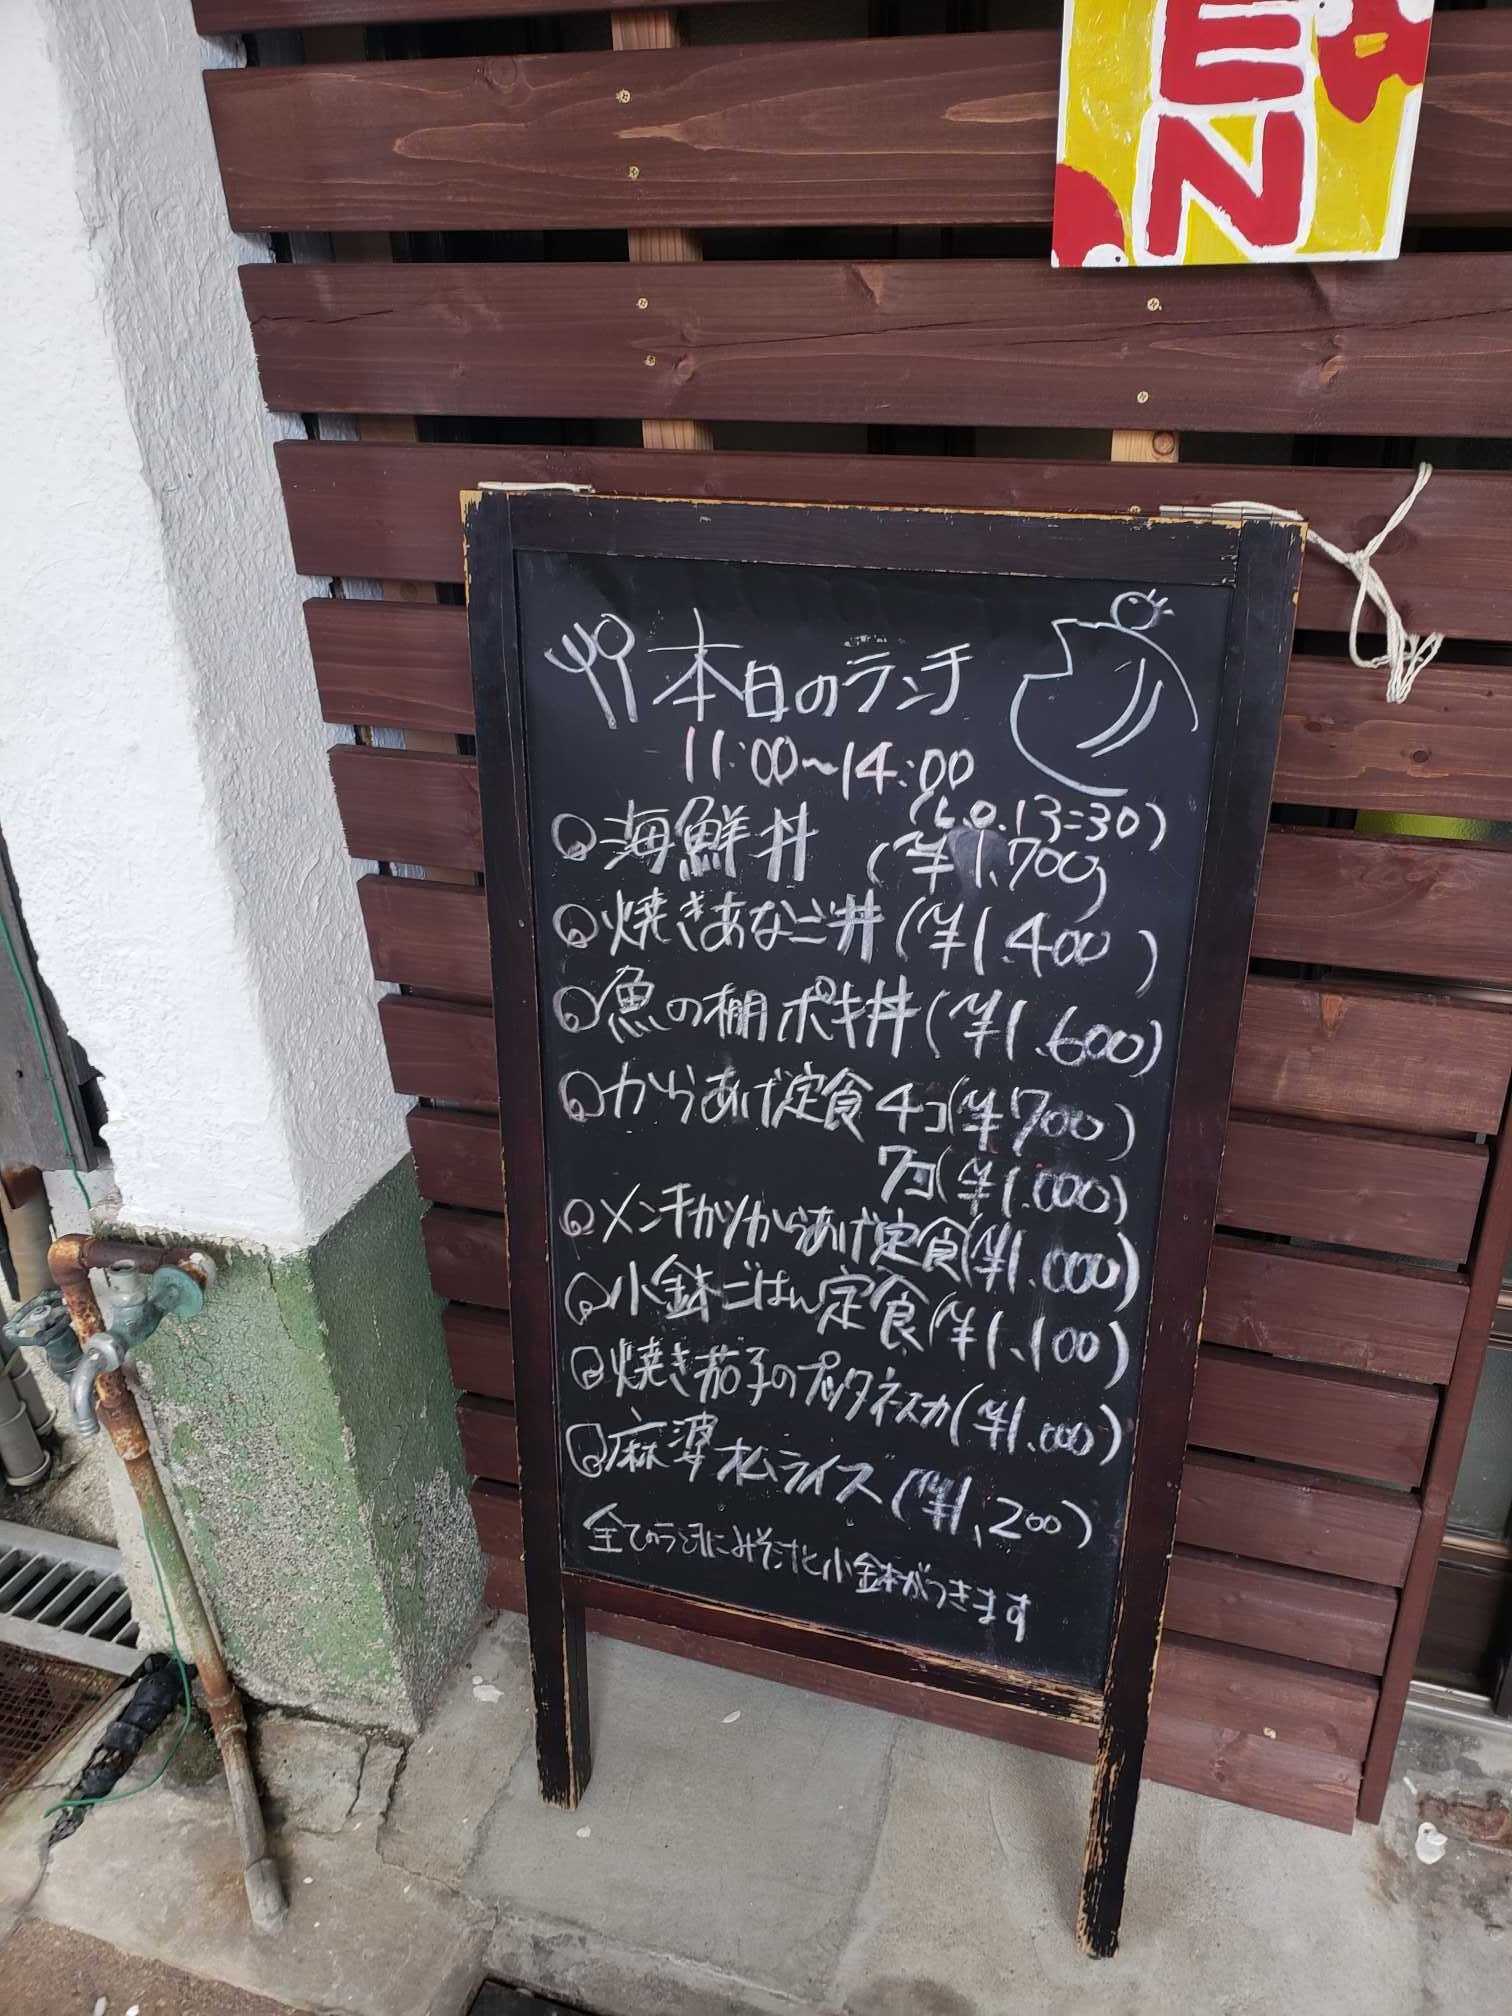 EN
本日のランチ
11:00〜14:00
(L.O.13:30)
海鮮丼 (¥1.700)
焼きあなご丼 (¥1.400)
魚の棚ポキ丼 (¥1.600)
からあげ定食 4コ (¥700)
7コ (¥1.000)
メンチカツからあげ定食 (¥1.000)
小鉢ごはん定食 (¥1.100)
焼き茄子のプッタネスカ (¥1.000)
麻婆 ライス (¥1,200)
全てのランチにみそ汁と小鉢がつきます